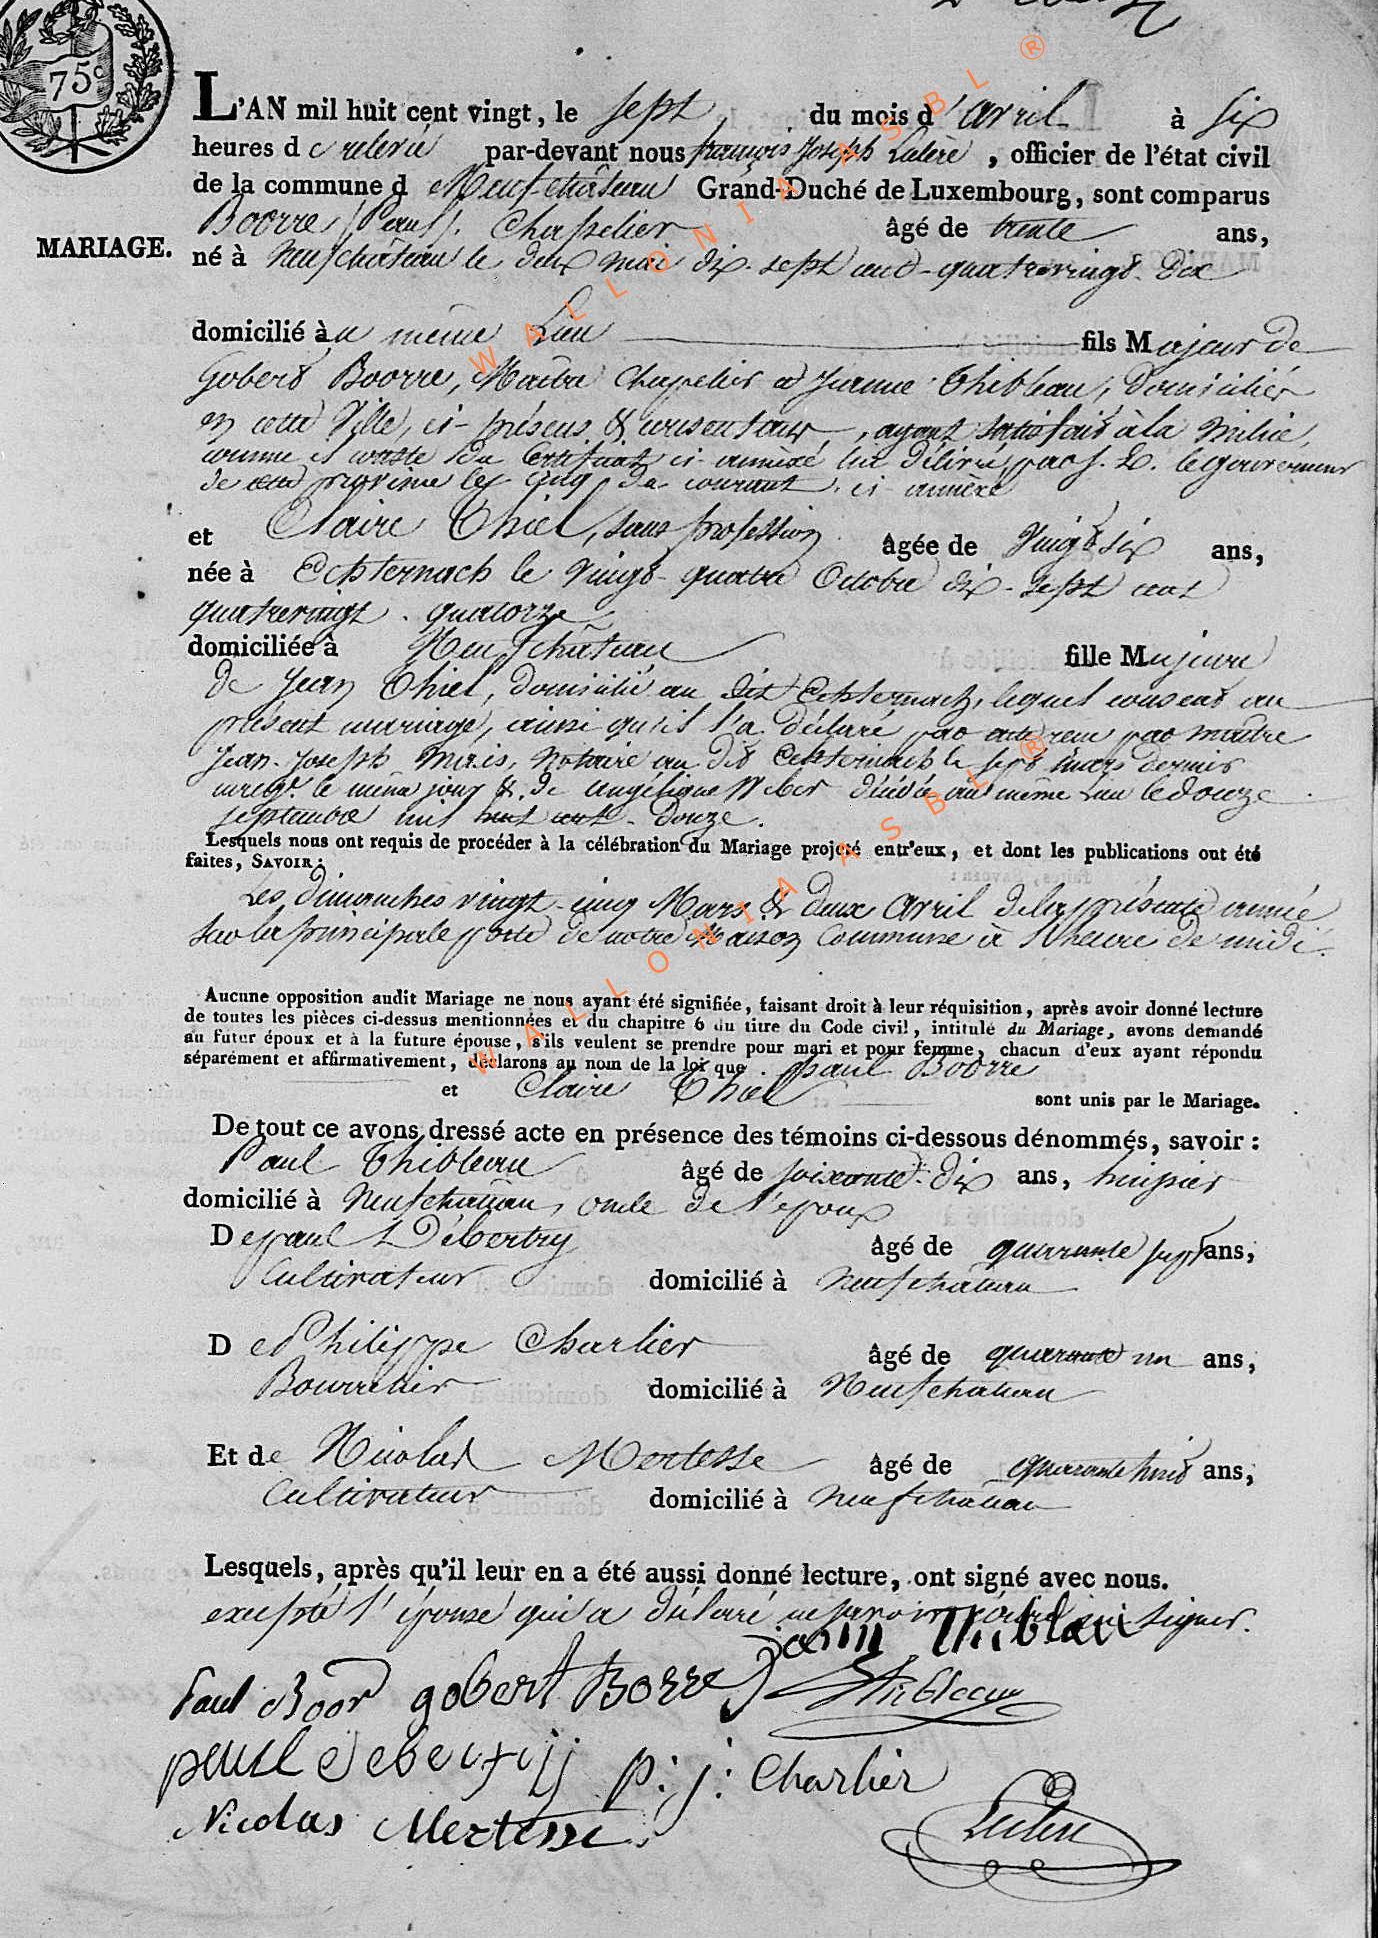 75c
L'AN mil huit cent vingt, le sept du mois d'avril à six
heures de relevée par-devant nous françois Joseph , officier de l'état civil
de la commune d Neufchâteau Grand-Duché de Luxembourg, sont comparus
Boorre (Paul). Chapelier âgé de trente ans,
MARIAGE.
né à Neufchâteau le deux mai dix-sept cent-quatrevingt-dix
domicilié àu même Lieu fils Majeur de
Gobert Boorre, Maître Chapelier et Jeanne Thibleau, domiciliés
en cette Ville, ci-présens & consentans, ayant satisfait à la milice,
comme il conste du Certificat ci-annéxé lui délivré par S. E. le gouverneur
de cette province le cinq du courant, ci-annéxé
et Claire Thiel, sans profession âgée de Vingt six ans,
née à Echternach le Vingt-quatre Octobre dix-sept cent
quatrevingt-quatorze
domiciliée à Neufchâteau fille Majeure
de Jean Thiel, domicilié au dit Echternach, lequel consent au
présent mariage, ainsi qu'il l'a déclaré par acte reçu par maître
Jean-Joseph, notaire au dit Echternach le sept mars dernier
enregé. le même jour &. de Angélique Weber décédée au même Lieu le douze
septembre mil huit cent-douze.
Lesquels nous ont requis de procéder à la célébration du Mariage projeté entr'eux, et dont les publications ont été
faites, SAVOIR:
Les Dimanches vingt-cinq Mars & deux Avril de la présente année
sur la principale porte de notre Maison Commune à l'heure de midi.
Aucune opposition audit Mariage ne nous ayant été signifiée, faisant droit à leur réquisition, après avoir donné lecture
de toutes les pièces ci-dessus mentionnées et du chapitre 6 du titre du Code civil, intitulé du Mariage, avons demandé
au futur époux et à la future épouse, s'ils veulent se prendre pour mari et pour femme, chacun d'eux ayant répondu
séparément et affirmativement, déclarons au nom de la loi que paul Boorre
et Claire Thiel sont unis par le Mariage.
De tout ce avons dressé acte en présence des témoins ci-dessous dénommés, savoir:
Paul Thibleau âgé de soixante-dix ans, huissier
domicilié à Neufchateau, oncle de l'epoux
De paul Débertry âgé de quarante sept ans,
Cultivateur domicilié à Neufchateau
D e Philippe Charlier âgé de quarante un ans,
Bourrelier domicilié à Neufchateau
Et de Nicolas Mertesse âgé de quarante huit ans,
Cultivateur domicilié à Neufchateau
Lesquels, après qu'il leur en a été aussi donné lecture, ont signé avec nous.
excepté l'épouse qui a déclaré ne savoir signer.
Paul Boor gobert Borre Jann Thiblau
Thibleau
paul debertry p: j: Charlier
Nicolas Mertesse
WALLONIA ASBL ®
WALLONIA ASBL ®